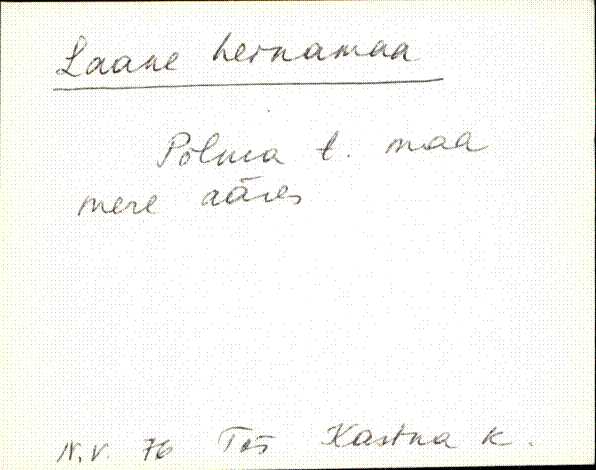 Laane heinamaa
Põlma t. maa
mere ääres
N.V. 76 Tõs Kastna k.